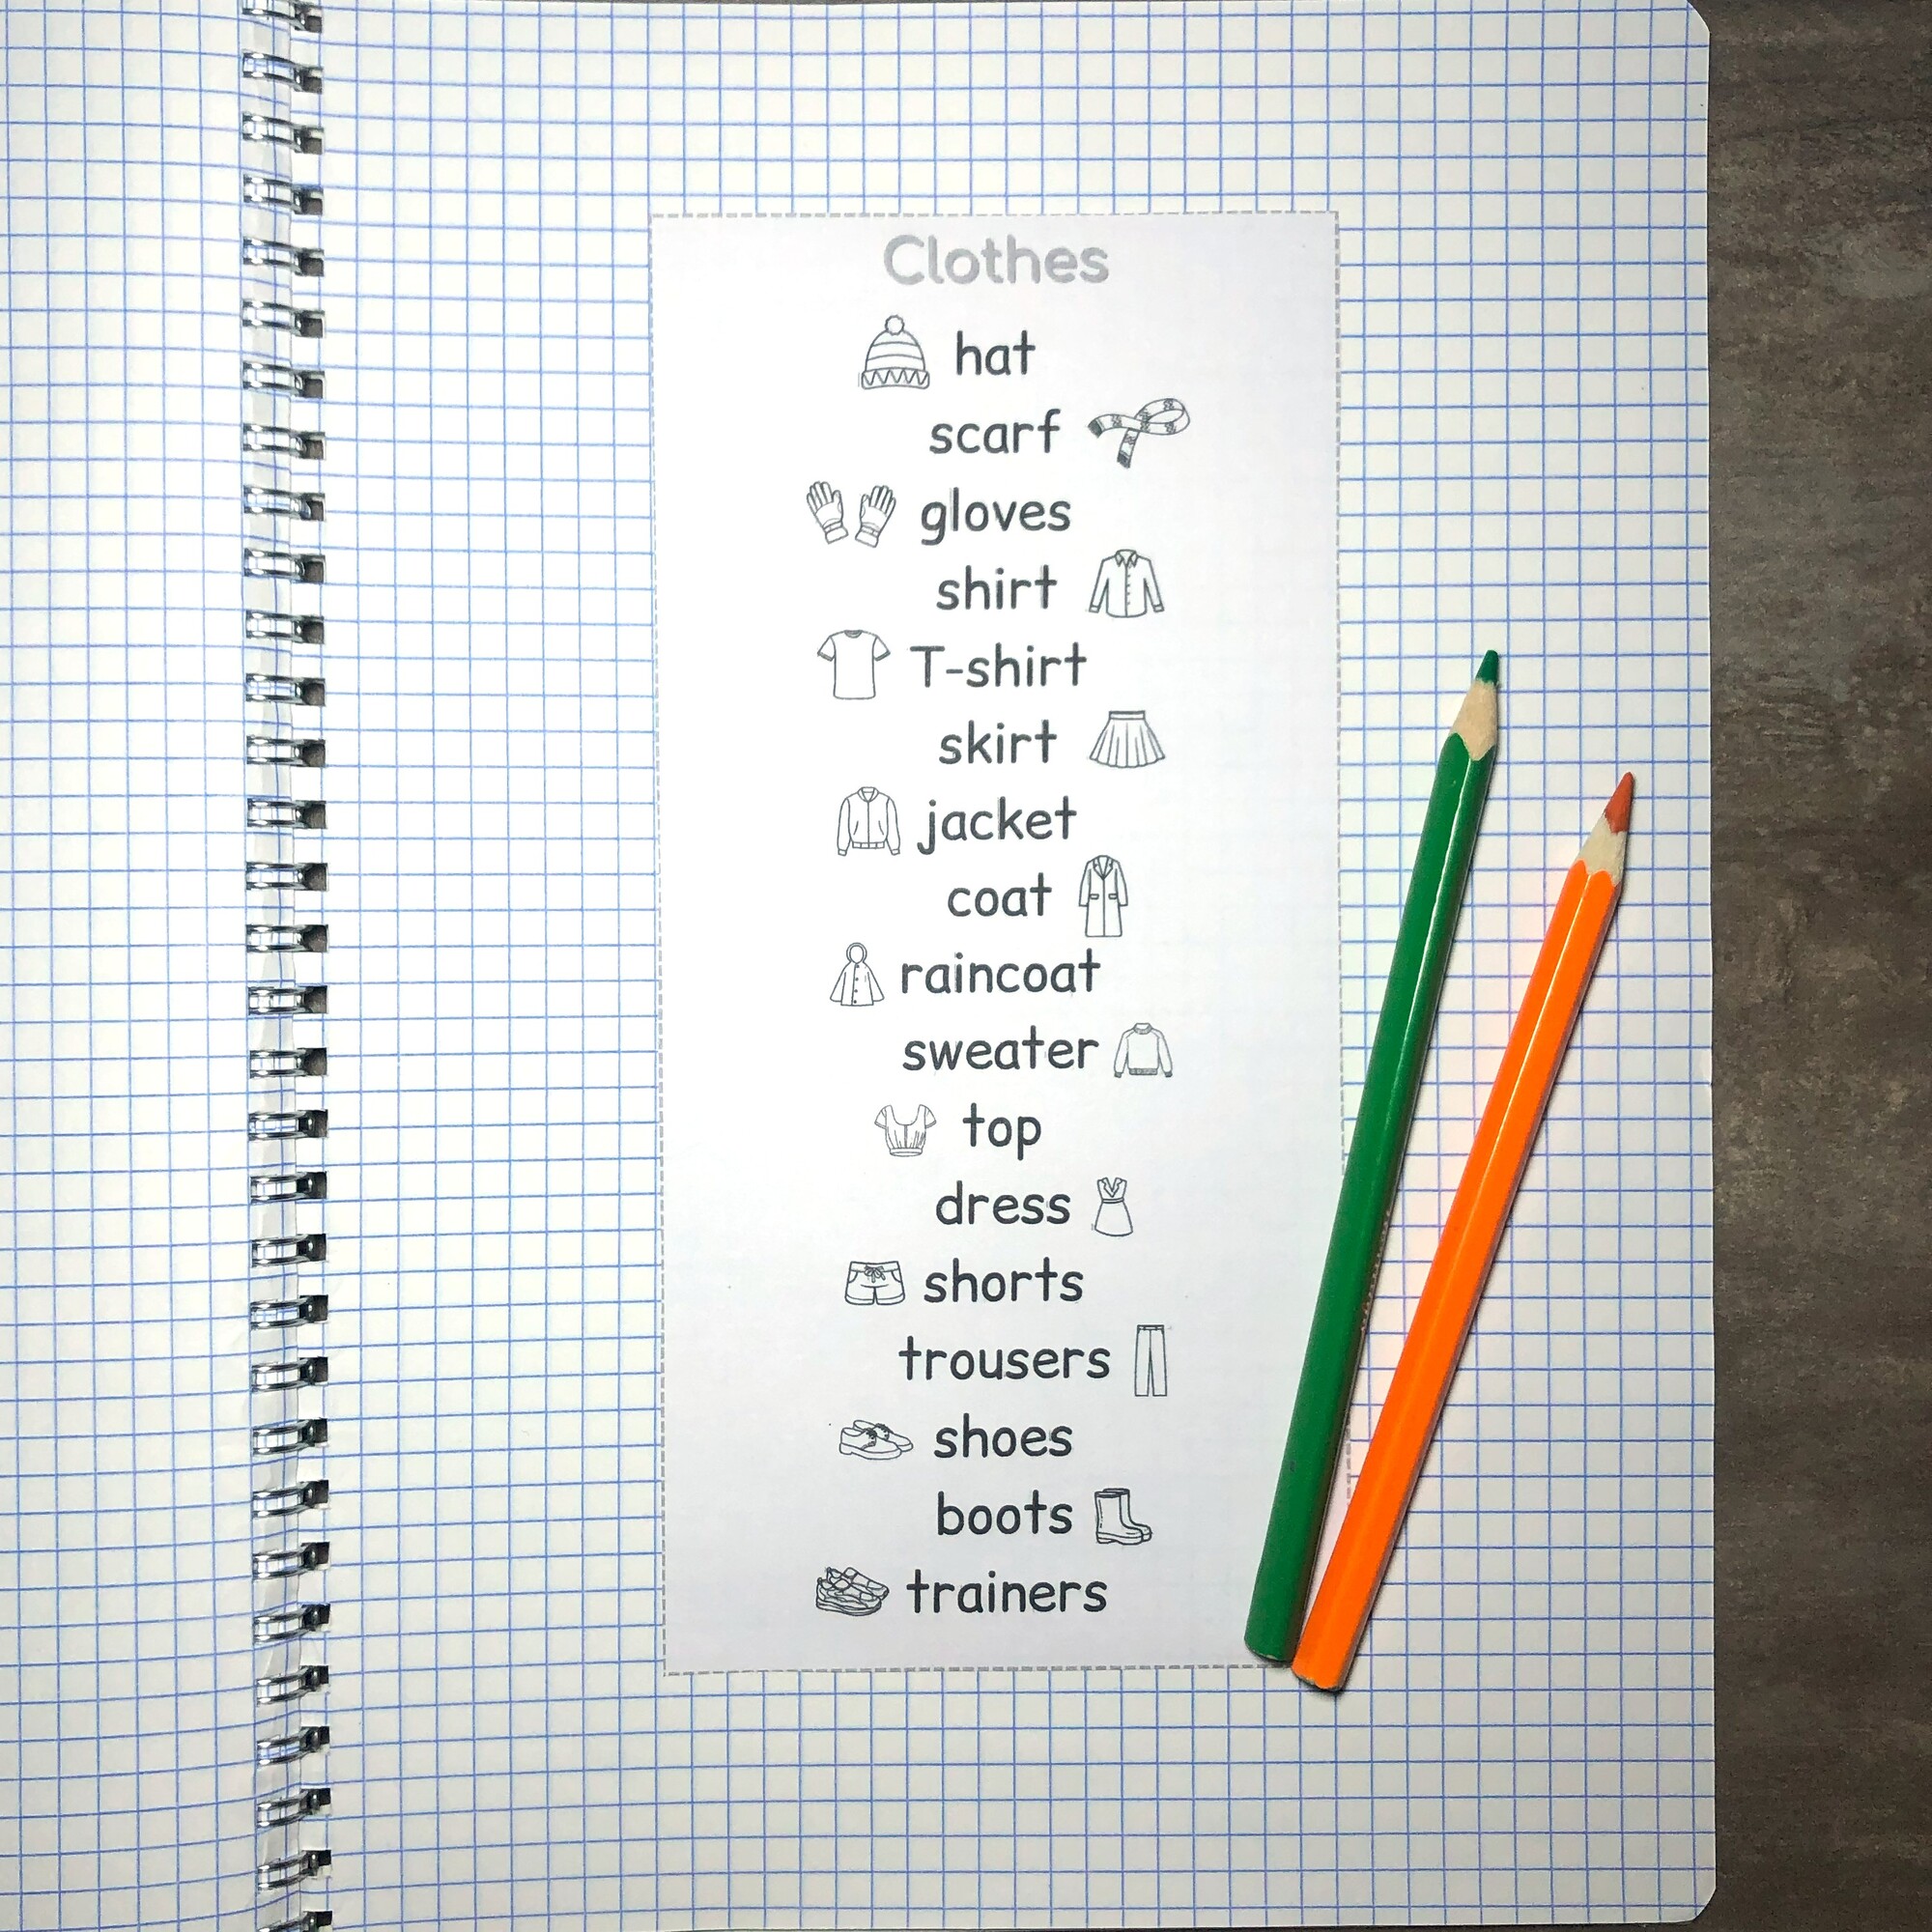 Clothes
hat
scarf
gloves
shirt
T-shirt
skirt
jacket
coat
raincoat
sweater
top
dress
shorts
trousers
shoes
boots
trainers